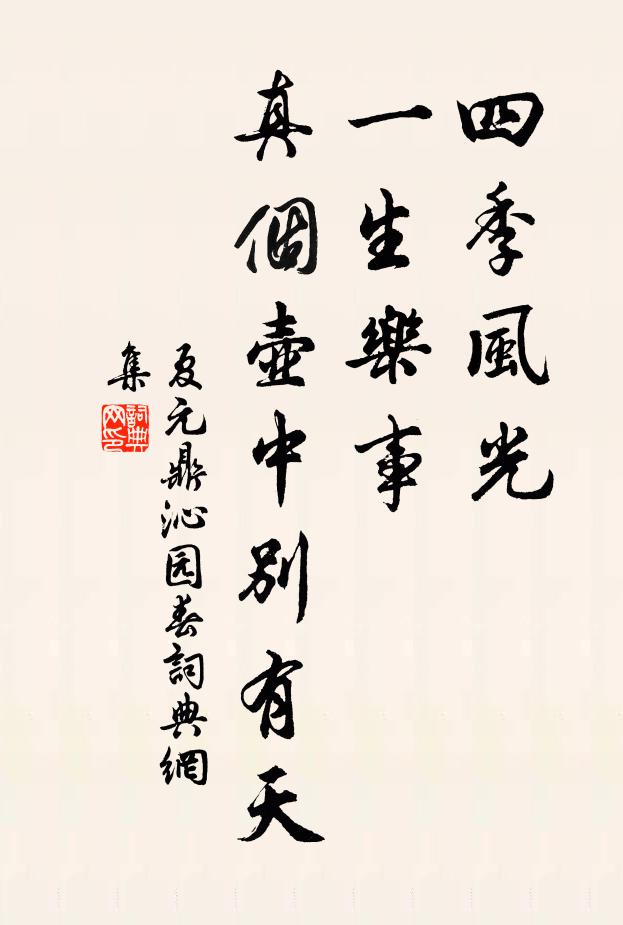 四季風光
一生樂事
真個壺中別有天
夏元鼎沁园春詞典網
集
詞典网印